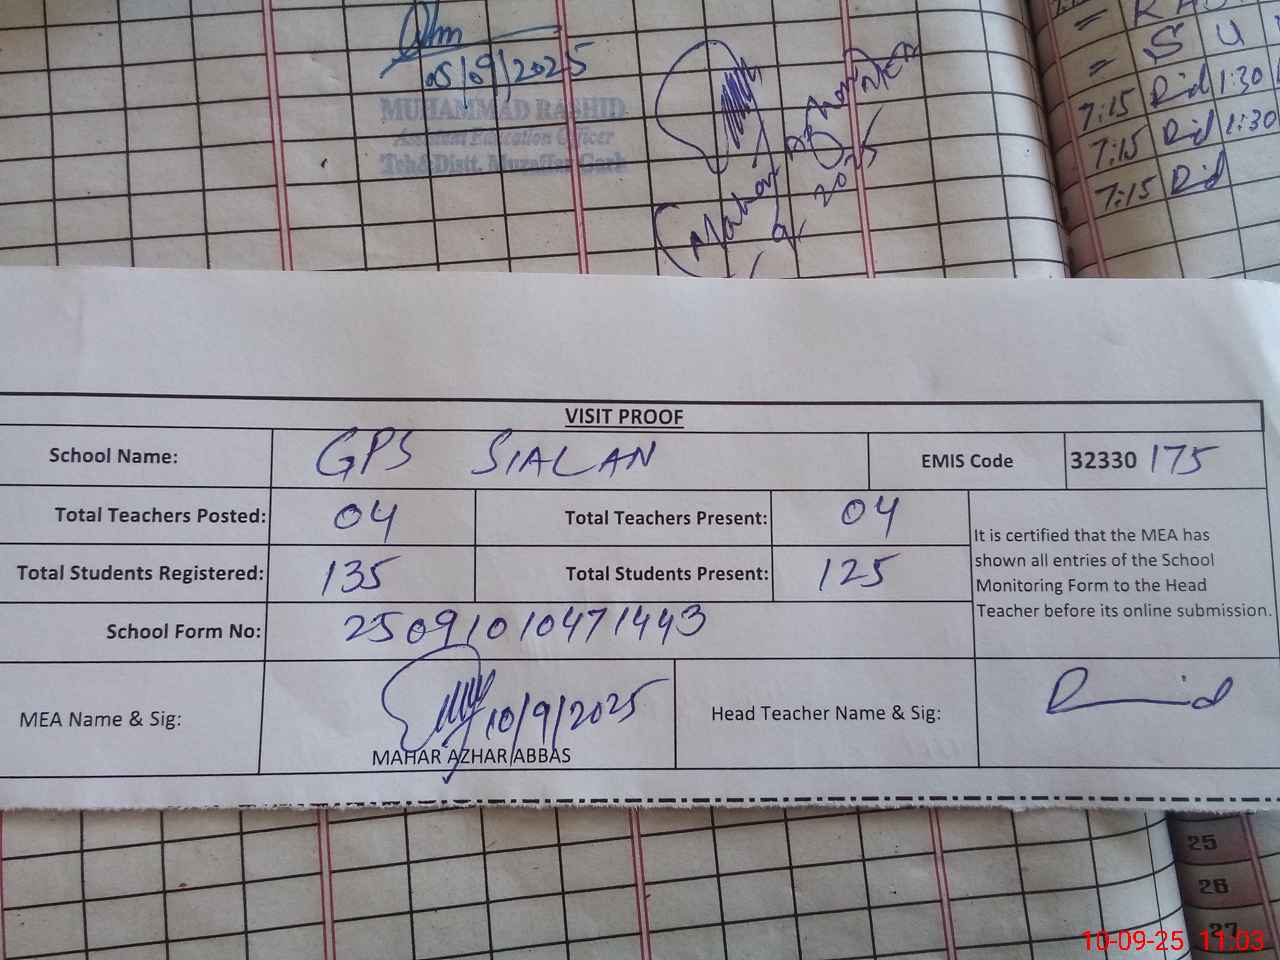 05/09/2025
MUHAMMAD RASHID
Assistant Education Officer
Teh&Distt. Muzaffar Garh
Mahar
2025
= S U
7:15 Rid 1:30
7:15 Rid 1:30
7:15 Rid
VISIT PROOF
School Name: GPS SIALAN EMIS Code 32330 175
Total Teachers Posted: 04 Total Teachers Present: 04
Total Students Registered: 135 Total Students Present: 125
It is certified that the MEA has
shown all entries of the School
Monitoring Form to the Head
Teacher before its online submission.
School Form No: 25091010471443
MEA Name & Sig: 10/9/2025
MAHAR AZHAR ABBAS
Head Teacher Name & Sig:
25
26
27
10-09-25 11:03